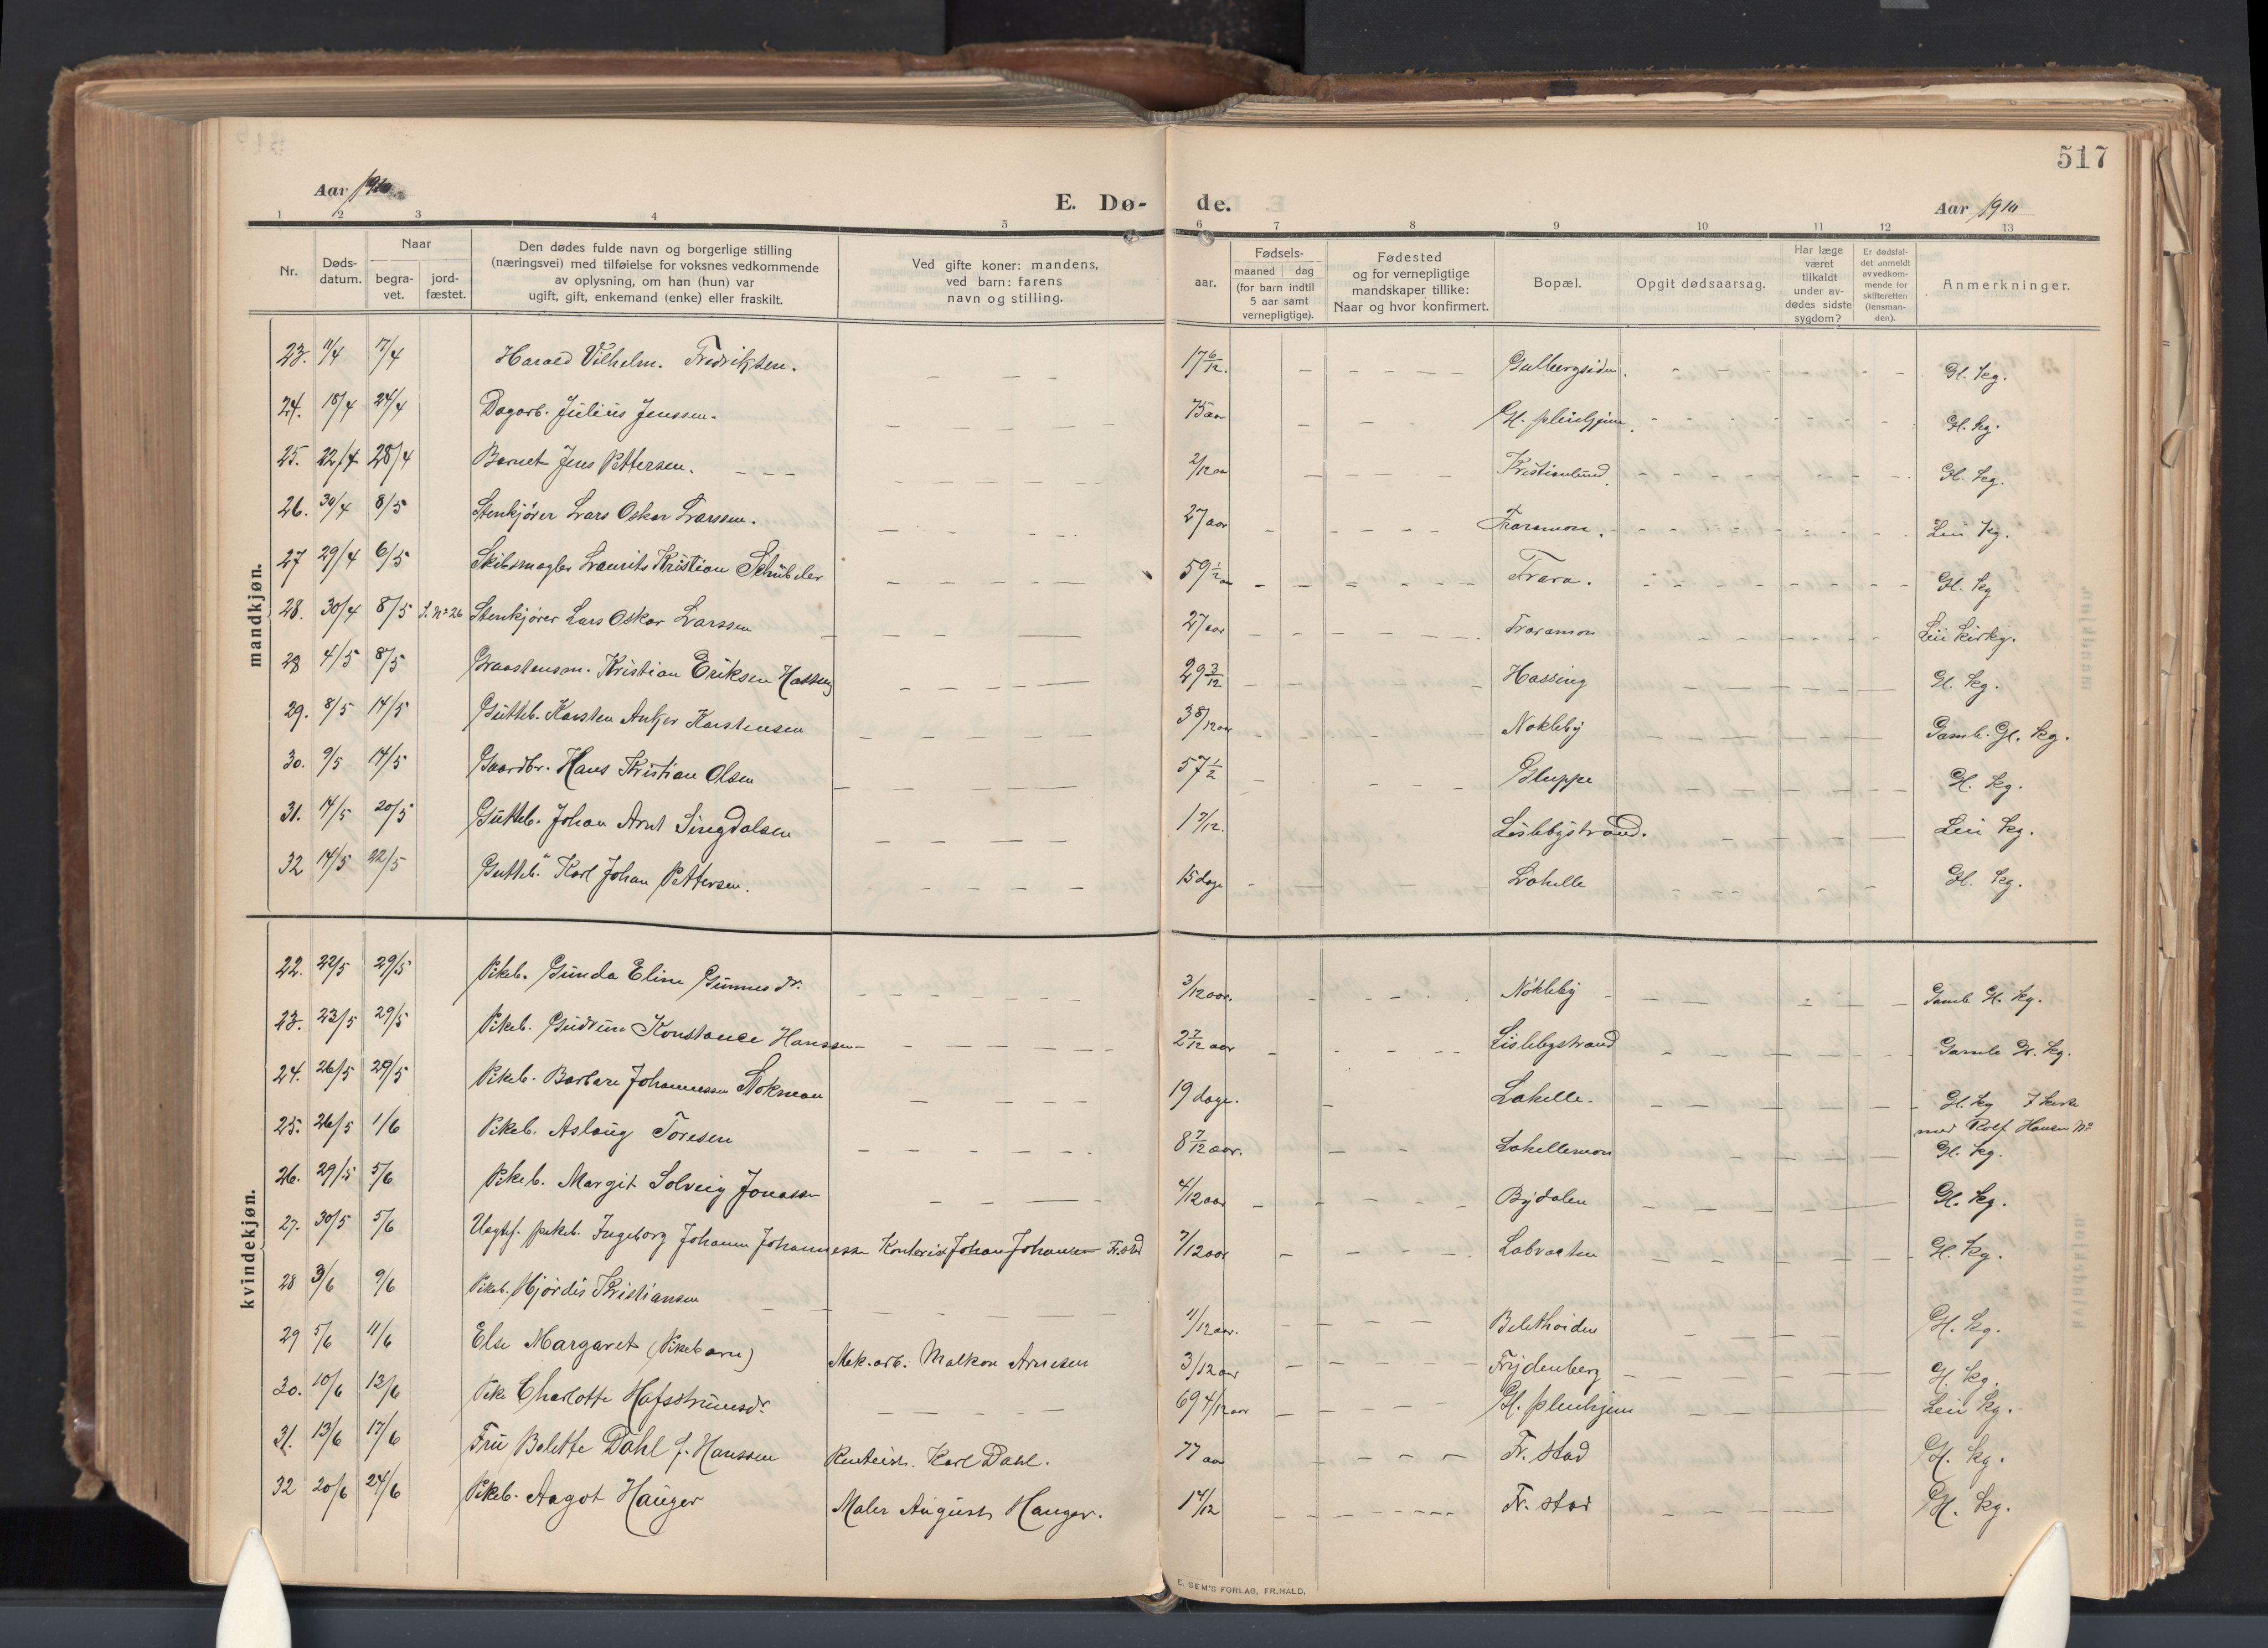 517
Aar 1910
E. Dø- de.
Aar 1910
1 2 3 4 5 6 7 8 9 10 11 12 13
Nr.
Døds-
datum.
Naar
begra-
vet.
jord-
fæstet.
Den dødes fulde navn og borgerlige stilling
(næringsvei) med tilføielse for voksnes vedkommende
av oplysning, om han (hun) var
ugift, gift, enkemand (enke) eller fraskilt.
Ved gifte koner: mandens,
ved barn: farens
navn og stilling.
aar.
Fødsels-
maaned dag
(for barn indtil
5 aar samt
vernepligtige).
Fødested
og for vernepligtige
mandskaper tillike:
Naar og hvor konfirmert.
Bopæl.
Opgit dødsaarsag.
Har læge
været
tilkaldt
under av-
dødes sidste
sygdom?
Er dødsfal-
det anmeldt
av vedkom-
mende for
skifteretten
(lensman-
den).
Anmerkninger.
mandkjøn.
23. 11/4 17/4 Harald Vilhelm. Fredriksen. 17 6/12. Gulbergsiden. Gl. kg.
24. 18/4 24/4 Dagarb. Julius Jenssen. 75 aar Gl. pleiehjem. Gl. kg.
25. 22/4 28/4 Barnet Jens Pettersen. 2/12 aar Kristianlund. Gl. kg.
26. 30/4 8/5 Stenkjører Lars Oskar Larssen. 27 aar Traramon. Leie kg.
27 29/4 6/5 Skibsmægler Lauritz Kristian Schübeler 59 1/2 aar Trara. Gl. kg
28. 30/4 8/5 S. No 26 Stenkjører Lars Oskar Larssen 27 aar Traramon Leie kirkg.
28 4/5 8/5 Graastensm. Kristian Eriksen Hassing 29 3/12 Hassing Gl. kg.
29. 8/5 14/5 Gutteb. Karsten Anker Karstensen 3 8/12 aar Nøkleby Gamle Gl. kg.
30. 9/5 14/5 Gaardbr. Hans Kristian Olsen 57 1/2 Gluppe Gl. kg.
31. 14/5 20/5 Gutteb. Johan Arnt Singdalsen 1 7/12. Lislebystrand. Leie kg.
32 14/5 22/5 Gutteb. Karl Johan Pettersen. 15 dage Lahelle Gl. kg.
kvindekjøn.
22. 22/5 29/5 Pikeb. Gunda Eline Gunnesdr. 3/12 aar. Nøkleby Gamle Gl. kg.
23. 23/5 29/5 Pikeb. Gudrun Konstance Hanssen 2 7/12 aar Lislebystrand Gamle Gl. kg.
24. 26/5 29/5 Pikeb. Barbara Johannessen Stokman 19 dage. Lahelle. Gl. kg I kiste
med Rolf Hansen No
25. 26/5 1/6 Pikeb. Aslaug Toresen 8 7/12 aar. Lahellemon Gl. kg.
26. 29/5 5/6 Pikeb. Margit Solveig Jonassen 4/12 aar Bydalen Gl. kg.
27. 30/5 5/6 Uegtef. pikeb. Ingeborg Johanne Johannessen Kontorist Johan Johansen Fr.stad 7/12 aar Labraaten Gl. kg.
28 3/6 9/6 Pikeb. Hjørdis Kristiansen 4/12 aar. Gl. kg.
29 5/6 11/6 Else Margaret (Pikebarn) Mek. arb. Malkon Arnesen 3/12 aar Frydenberg Gl. kg.
30. 10/6 12/6 Pike Charlotte Hafsstrumsdr. 69 4/12 aar Gl. pleiehjem Leie kg.
31. 13/6 17/6 Fru Bolette Dahl f. Hanssen Renteist. Karl Dahl. 77 aar Fr. stad Gl. kg.
32 20/6 24/6 Pikeb. Aagot Hauger Maler August Hauger. 1 4/12 Fr. stad Gl. kg.
E. SEM'S FORLAG, FR.HALD.